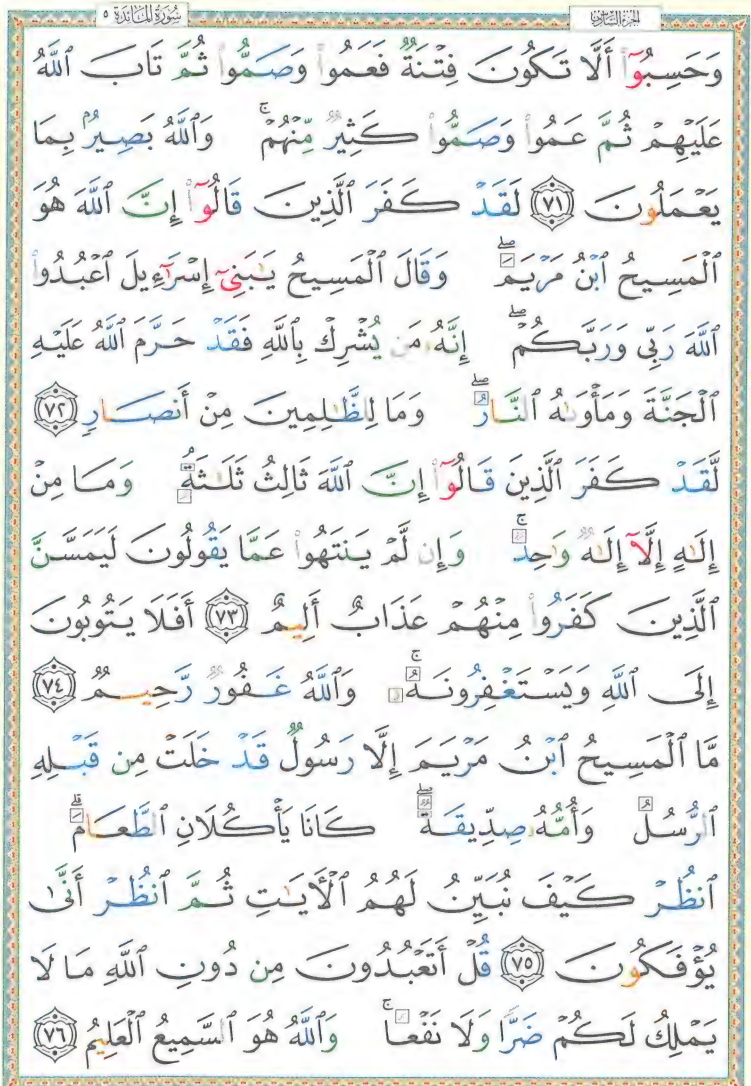 سُورَةُ المَائِدَة ٥
الجزء السادس
وَحَسِبُوٓا۟ أَلَّا تَكُونَ فِتْنَةٌ فَعَمُوا۟ وَصَمُّوا۟ ثُمَّ تَابَ ٱللَّهُ
عَلَيْهِمْ ثُمَّ عَمُوا۟ وَصَمُّوا۟ كَثِيرٌ مِّنْهُمْ ۚ وَٱللَّهُ بَصِيرٌۢ بِمَا
يَعْمَلُونَ ٧١ لَقَدْ كَفَرَ ٱلَّذِينَ قَالُوٓا۟ إِنَّ ٱللَّهَ هُوَ
ٱلْمَسِيحُ ٱبْنُ مَرْيَمَ ۖ وَقَالَ ٱلْمَسِيحُ يَـٰبَنِىٓ إِسْرَٰٓءِيلَ ٱعْبُدُوا۟
ٱللَّهَ رَبِّى وَرَبَّكُمْ ۖ إِنَّهُۥ مَن يُشْرِكْ بِٱللَّهِ فَقَدْ حَرَّمَ ٱللَّهُ عَلَيْهِ
ٱلْجَنَّةَ وَمَأْوَىٰهُ ٱلنَّارُ ۖ وَمَا لِلظَّـٰلِمِينَ مِنْ أَنصَارٍ ٧٢
لَّقَدْ كَفَرَ ٱلَّذِينَ قَالُوٓا۟ إِنَّ ٱللَّهَ ثَالِثُ ثَلَـٰثَةٍ ۘ وَمَا مِنْ
إِلَـٰهٍ إِلَّآ إِلَـٰهٌ وَٰحِدٌ ۚ وَإِن لَّمْ يَنتَهُوا۟ عَمَّا يَقُولُونَ لَيَمَسَّنَّ
ٱلَّذِينَ كَفَرُوا۟ مِنْهُمْ عَذَابٌ أَلِيمٌ ٧٣ أَفَلَا يَتُوبُونَ
إِلَى ٱللَّهِ وَيَسْتَغْفِرُونَهُۥ ۚ وَٱللَّهُ غَفُورٌ رَّحِيمٌ ٧٤
مَّا ٱلْمَسِيحُ ٱبْنُ مَرْيَمَ إِلَّا رَسُولٌ قَدْ خَلَتْ مِن قَبْلِهِ
ٱلرُّسُلُ وَأُمُّهُۥ صِدِّيقَةٌ ۖ كَانَا يَأْكُلَانِ ٱلطَّعَامَ ۗ
ٱنظُرْ كَيْفَ نُبَيِّنُ لَهُمُ ٱلْـَٔايَـٰتِ ثُمَّ ٱنظُرْ أَنَّىٰ
يُؤْفَكُونَ ٧٥ قُلْ أَتَعْبُدُونَ مِن دُونِ ٱللَّهِ مَا لَا
يَمْلِكُ لَكُمْ ضَرًّا وَلَا نَفْعًا ۚ وَٱللَّهُ هُوَ ٱلسَّمِيعُ ٱلْعَلِيمُ ٧٦